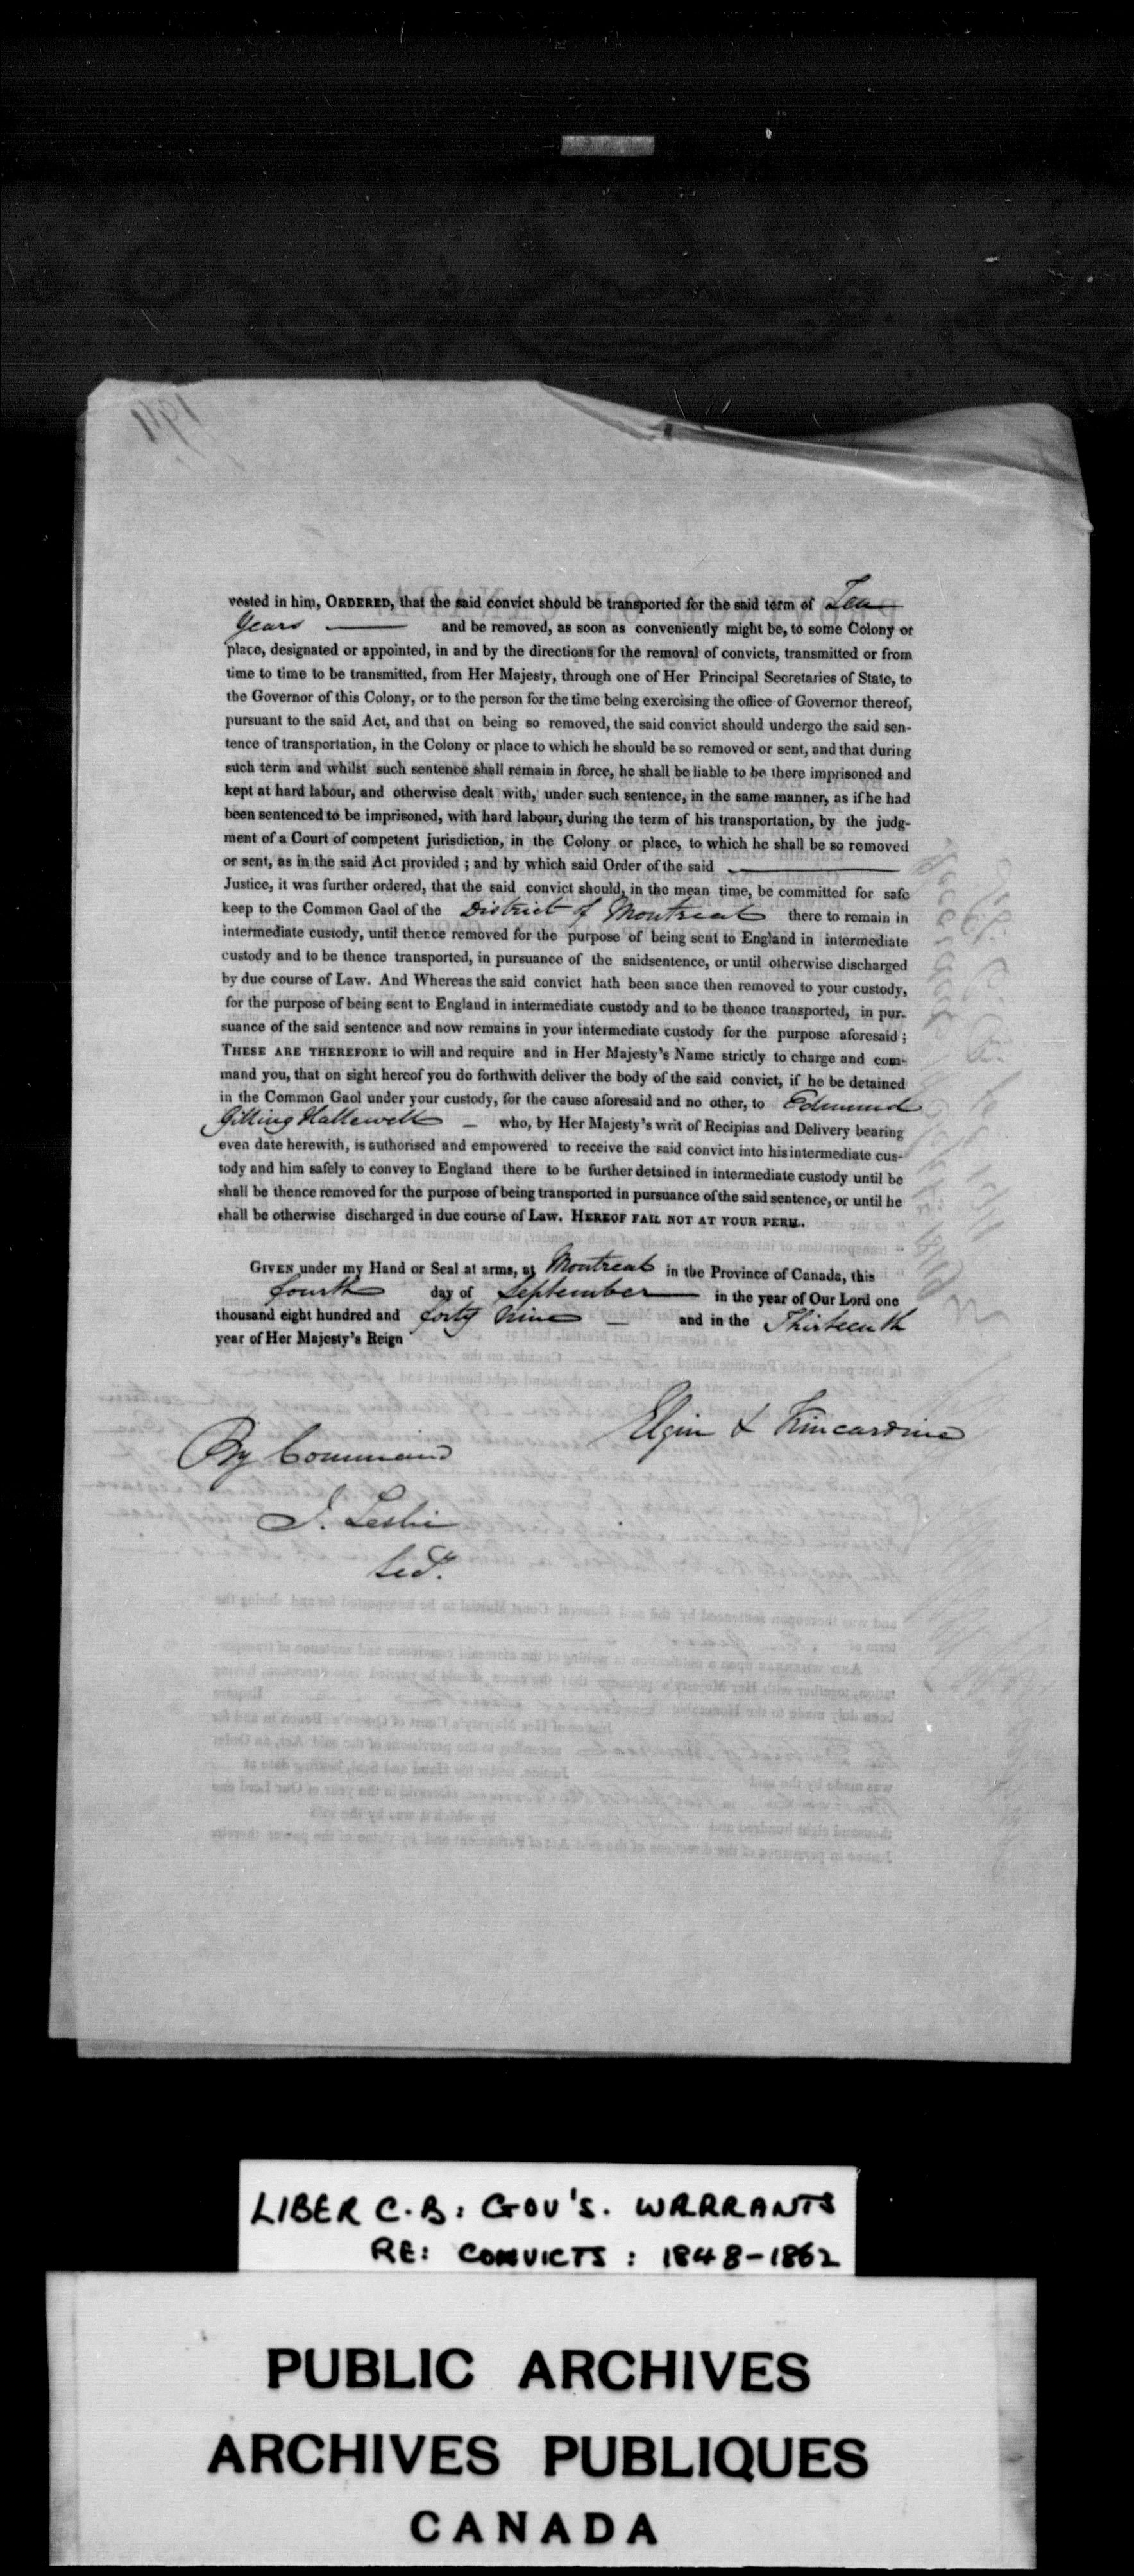 vested in him, ORDERED, that the said convict should be transported for the said term of Ten
Years — and be removed, as soon as conveniently might be, to some Colony or
place, designated or appointed, in and by the directions for the removal of convicts, transmitted or from
time to time to be transmitted, from Her Majesty, through one of Her Principal Secretaries of State, to
the Governor of this Colony, or to the person for the time being exercising the office of Governor thereof,
pursuant to the said Act, and that on being so removed, the said convict should undergo the said sen-
tence of transportation, in the Colony or place to which he should be so removed or sent, and that during
such term and whilst such sentence shall remain in force, he shall be liable to be there imprisoned and
kept at hard labour, and otherwise dealt with, under such sentence, in the same manner, as if he had
been sentenced to be imprisoned, with hard labour, during the term of his transportation, by the judg-
ment of a Court of competent jurisdiction, in the Colony or place, to which he shall be so removed
or sent, as in the said Act provided ; and by which said Order of the said —
Justice, it was further ordered, that the said convict should, in the mean time, be committed for safe
keep to the Common Gaol of the District of Montreal there to remain in
intermediate custody, until thence removed for the purpose of being sent to England in intermediate
custody and to be thence transported, in pursuance of the saidsentence, or until otherwise discharged
by due course of Law. And Whereas the said convict hath been since then removed to your custody,
for the purpose of being sent to England in intermediate custody and to be thence transported, in pur-
suance of the said sentence and now remains in your intermediate custody for the purpose aforesaid ;
THESE ARE THEREFORE to will and require and in Her Majesty's Name strictly to charge and com-
mand you, that on sight hereof you do forthwith deliver the body of the said convict, if he be detained
in the Common Gaol under your custody, for the cause aforesaid and no other, to Edmund
Gilling Hallewell — who, by Her Majesty's writ of Recipias and Delivery bearing
even date herewith, is authorised and empowered to receive the said convict into his intermediate cus-
tody and him safely to convey to England there to be further detained in intermediate custody until he
shall be thence removed for the purpose of being transported in pursuance of the said sentence, or until he
shall be otherwise discharged in due course of Law. HEREOF FAIL NOT AT YOUR PERIL.
GIVEN under my Hand or Seal at arms, at Montreal in the Province of Canada, this
fourth day of September — in the year of Our Lord one
thousand eight hundred and forty nine — and in the Thirteenth
year of Her Majesty's Reign
Elgin & Kincardine
By Command
J. Leslie
Secy.
LIBER C.B: GOV'S. WARRANTS
RE: CONVICTS : 1848-1862
PUBLIC ARCHIVES
ARCHIVES PUBLIQUES
CANADA